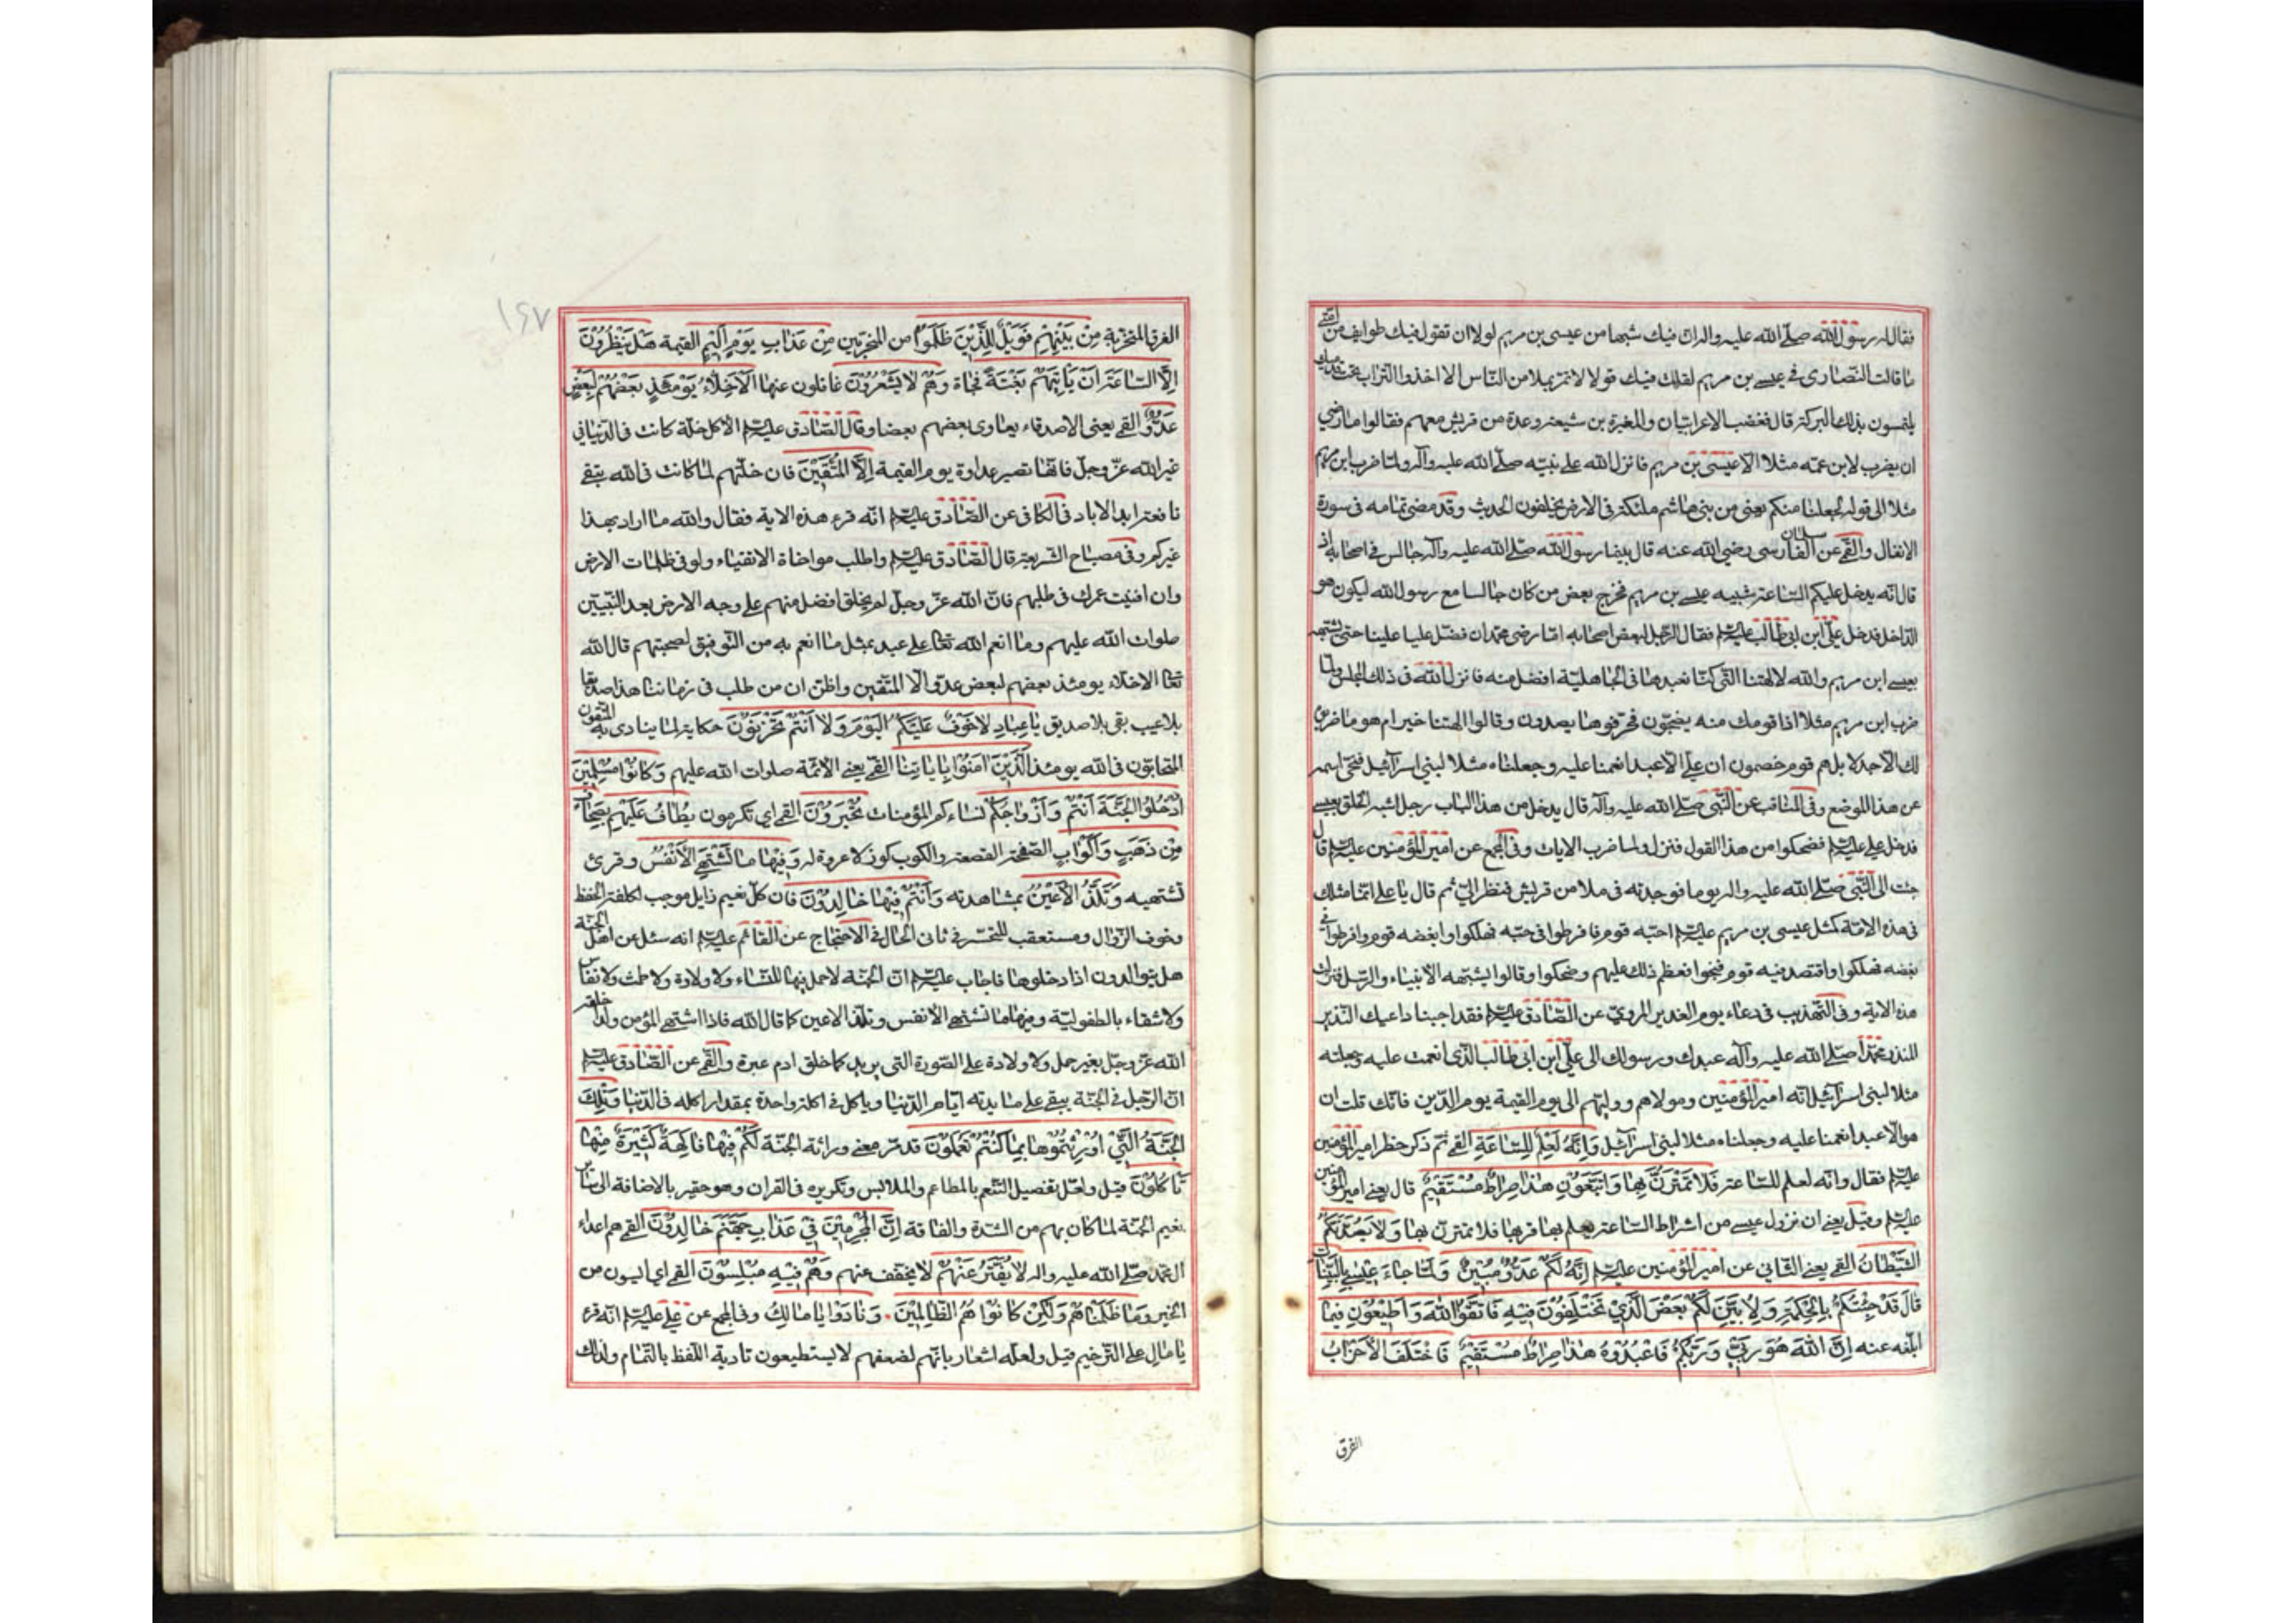 فقال له رسول الله صلّى الله عليه واله ان فيك شبها من عيسى بن مريم لولا ان تقول فيك طوايف من امّتى
ما قالت النصارى فى عيسى بن مريم لقلت فيك قولا لا تمرّ بملا من النّاس الا اخذوا التراب من تحت قدميك
يلتمسون بذلك البركة قال فغضب الاعرابيّان والمغيرة بن شيعة وعدة من قريش معهم فقالوا ما رضى
ان يضرب لابن عمّه مثلا الا عيسى بن مريم فانزل الله على نبيّه صلّى الله عليه وآله ولمّا ضرب ابن مريم
مثلا الى قوله لجعلنا منكم يعنى من بنى هاشم ملئكة فى الارض يخلفون الحديث وقد مضى تمامه فى سورة
الانفال والقمى عن سلمان الفارسى رضى الله عنه قال بينما رسول الله صلّى الله عليه وآله جالس فى اصحابه اذ
قال انّه يدخل عليكم السّاعة شبيه عيسى بن مريم فخرج بعض من كان جالسا مع رسول الله ليكون هو
الدّاخل فدخل علىّ ابن ابى طالب عليه السلم فقال الرّجل لبعض اصحابه امّا رضى محمّد ان فضّل عليا علينا حتى يشبّهه
بعيسى ابن مريم والله لالهتنا التى كنّا نعبدها فى الجاهليّة افضل منه فانزل الله فى ذلك المجلس ولمّا
ضرب ابن مريم مثلا اذا قومك منه يضجّون فحرّفوها يصدون وقالوا الهتنا خير ام هو ما ضربوه
لك الاّ جدلا بل هم قوم خصمون ان علىّ الاّ عبد انعمنا عليه وجعلناه مثلا لبنى اسرآئيل فمحى اسمه
عن هذا الموضع وفى المناقب عن النّبى صلّى الله عليه وآله قال يدخل من هذا الباب رجل اشبه الخلق بعيسى
فدخل على عليه السلم فضحكوا من هذا القول فنزل ولما ضرب الايات وفى المجمع عن امير المؤمنين عليه السلم قال
جئت الى النّبى صلّى الله عليه واله يوما فوجدته فى ملا من قريش فنظر الىّ ثم قال يا على انّما مثلك
فى هذه الامّة كمثل عيسى بن مريم عليه السلم احبّه قوم فافرطوا فى حبّه فهلكوا وابغضه قوم وافرطوا فى
بغضه فهلكوا واقتصد فيه قوم فنجوا فعظم ذلك عليهم وضحكوا وقالوا يشبّهه الانبياء والرّسل فنزلت
هذه الاية وفى التّهذيب فى دعاء يوم الغدير المروىّ عن الصّادق عليه السلم فقد اجبنا داعيك النّذير
المنذر محمّدا صلّى الله عليه وآله عبدك ورسولك الى علىّ ابن ابى طالب الّذى انعمت عليه وجعلته
مثلا لبنى اسرآئيل انّه امير المؤمنين ومولاهم ووليّهم الى يوم القيمة يوم الدّين فانّك قلت ان
هو الاّ عبد انعمنا عليه وجعلناه مثلا لبنى اسرآئيل وَاِنَّهُ لَعِلْمٌ لِلسَّاعَةِ القمى ثم ذكر خطر امير المؤمنين
عليه السلم فقال وانّه لعلم للسّاعة فَلَا تَمْتَرُنَّ بِهَا وَاتَّبِعُونِ هٰذَا صِرَاطٌ مُسْتَقِيمٌ قال يعنى امير المؤمنين
عليه السلم وقيل يعنى ان نزول عيسى من اشراط السّاعة يعلم بها قربها فلا تمترنّ بها وَلَا يَصُدَّنَّكُمُ
الشَّيْطَانُ القمى يعنى الثّانى عن امير المؤمنين عليه السلم اِنَّهُ لَكُمْ عَدُوٌّ مُبِينٌ وَلَمَّا جَاءَ عِيسَى بِالْبَيِّنَاتِ
قَالَ قَدْ جِئْتُكُمْ بِالْحِكْمَةِ وَلِاُبَيِّنَ لَكُمْ بَعْضَ الَّذِي تَخْتَلِفُونَ فِيهِ فَاتَّقُوا اللّٰهَ وَاَطِيعُونِ فيما
ابلّغه عنه اِنَّ اللّٰهَ هُوَ رَبِّي وَرَبُّكُمْ فَاعْبُدُوهُ هٰذَا صِرَاطٌ مُسْتَقِيمٌ فَاخْتَلَفَ الْاَحْزَابُ
الفرق
١٤٧
الفرق المتحزّبة مِنْ بَيْنِهِمْ فَوَيْلٌ لِلَّذِينَ ظَلَمُوا من المتحزّبين مِنْ عَذَابِ يَوْمٍ اَلِيمٍ القيمة هَلْ يَنْظُرُونَ
اِلَّا السَّاعَةَ اَنْ يَاْتِيَهُمْ بَغْتَةً فجاة وَهُمْ لَا يَشْعُرُونَ غافلون عنها الْاَخِلَّاءُ يَوْمَئِذٍ بَعْضُهُمْ لِبَعْضٍ
عَدُوٌّ القمى يعنى الاصدقاء يعادى بعضهم بعضا وقال الصّادق عليه السلم الا كل خلّة كانت فى الدّنيا فى
غير الله عزّ وجلّ فانّها تصير عداوة يوم القيمة اِلَّا الْمُتَّقِينَ فان خلّتهم لمّا كانت فى الله يبقى
نافعة ابد الاباد فى الكافى عن الصّادق عليه السلم انّه قرء هذه الاية فقال والله ما اراد بهذا
غيركم وفى مصباح الشريعة قال الصّادق عليه السلم واطلب مواخاة الاتقياء ولو فى ظلمات الارض
وان افنيت عمرك فى طلبهم فانّ الله عزّ وجلّ لم يخلق افضل منهم على وجه الارض بعد النّبيّين
صلوات الله عليهم وما انعم الله تعا على عبد بمثل ما انعم به من التّوفيق لصحبتهم قال الله
تعا الاخلاء يومئذ بعضهم لبعض عدوّ الا المتّقين واظنّ ان من طلب فى زماننا هذا صديقا
بلا عيب بقى بلا صديق يَا عِبَادِ لَا خَوْفٌ عَلَيْكُمُ الْيَوْمَ وَلَا اَنْتُمْ تَحْزَنُونَ حكاية لما ينادى به المتّقون
المتحابّون فى الله يومئذ اَلَّذِينَ اٰمَنُوا بِاٰيَاتِنَا القمى يعنى الائمّة صلوات الله عليهم وَكَانُوا مُسْلِمِينَ
اُدْخُلُوا الْجَنَّةَ اَنْتُمْ وَاَزْوَاجُكُمْ نساءكم المؤمنات تُحْبَرُونَ القمى اى تكرمون يُطَافُ عَلَيْهِمْ بِصِحَافٍ
مِنْ ذَهَبٍ وَاَكْوَابٍ الصّفحة القصعة والكوب كوز لا عروة له وَفِيهَا مَا تَشْتَهِي الْاَنْفُسُ وقرئ
تشتهيه وَتَلَذُّ الْاَعْيُنُ بمشاهدته وَاَنْتُمْ فِيهَا خَالِدُونَ فان كلّ نعيم زايل موجب لكلفة الحفظ
وخوف الزّوال ومستعقب للتحسّر فى ثانى الحال فى الاحتجاج عن القائم عليه السلم انه سئل عن اهل الجنّة
هل يتوالدون اذا دخلوها فاجاب عليه السلم انّ الجنّة لا حمل فيها للنّساء ولا ولادة ولا طمث ولا نفاس
ولا شقاء بالطفوليّة وفيها ما تشتهى الانفس وتلذّ الاعين كما قال الله فاذا اشتهى المؤمن ولدا خلقه
الله عزّ وجلّ بغير حمل ولا ولادة على الصّورة التى يريد كما خلق ادم عبرة والقمى عن الصّادق عليه السلم
انّ الرّجل فى الجنّة يبقى على مائدته ايّام الدّنيا وياكل فى اكلة واحدة بمقدار اكله فى الدّنيا وَتِلْكَ
الْجَنَّةُ الَّتِي اُورِثْتُمُوهَا بِمَا كُنْتُمْ تَعْمَلُونَ قد مرّ معنى وراثة الجنّة لَكُمْ فِيهَا فَاكِهَةٌ كَثِيرَةٌ مِنْهَا
تَاْكُلُونَ قيل ولعلّ تفصيل التنّعم بالمطاعم والملابس وتكريره فى القران وهو حقير بالاضافة الى سائر
نعيم الجنّة لما كان بهم من الشدّة والفاقة اِنَّ الْمُجْرِمِينَ فِي عَذَابِ جَهَنَّمَ خَالِدُونَ القمى هم اعداء
ال محمّد صلّى الله عليه واله لَا يُفَتَّرُ عَنْهُمْ لا يخفّف عنهم وَهُمْ فِيهِ مُبْلِسُونَ القمى اى ايسون من
الخير وَمَا ظَلَمْنَاهُمْ وَلٰكِنْ كَانُوا هُمُ الظَّالِمِينَ وَنَادَوْا يَا مَالِكُ وفى المجمع عن على عليه السلم انّه قرء
يا مال على التّرخيم قيل ولعلّه اشعار بانّهم لضعفهم لا يستطيعون تادية اللّفظ بالتّمام ولذلك